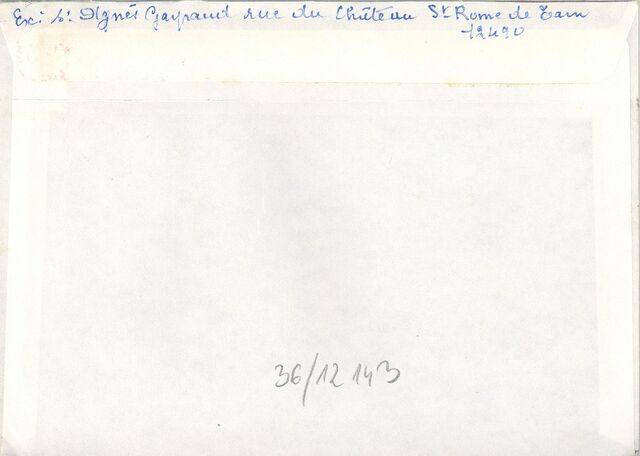 Exp: Agnès Gayraud rue du Château St Rome de Tarn
12490
36/12 143